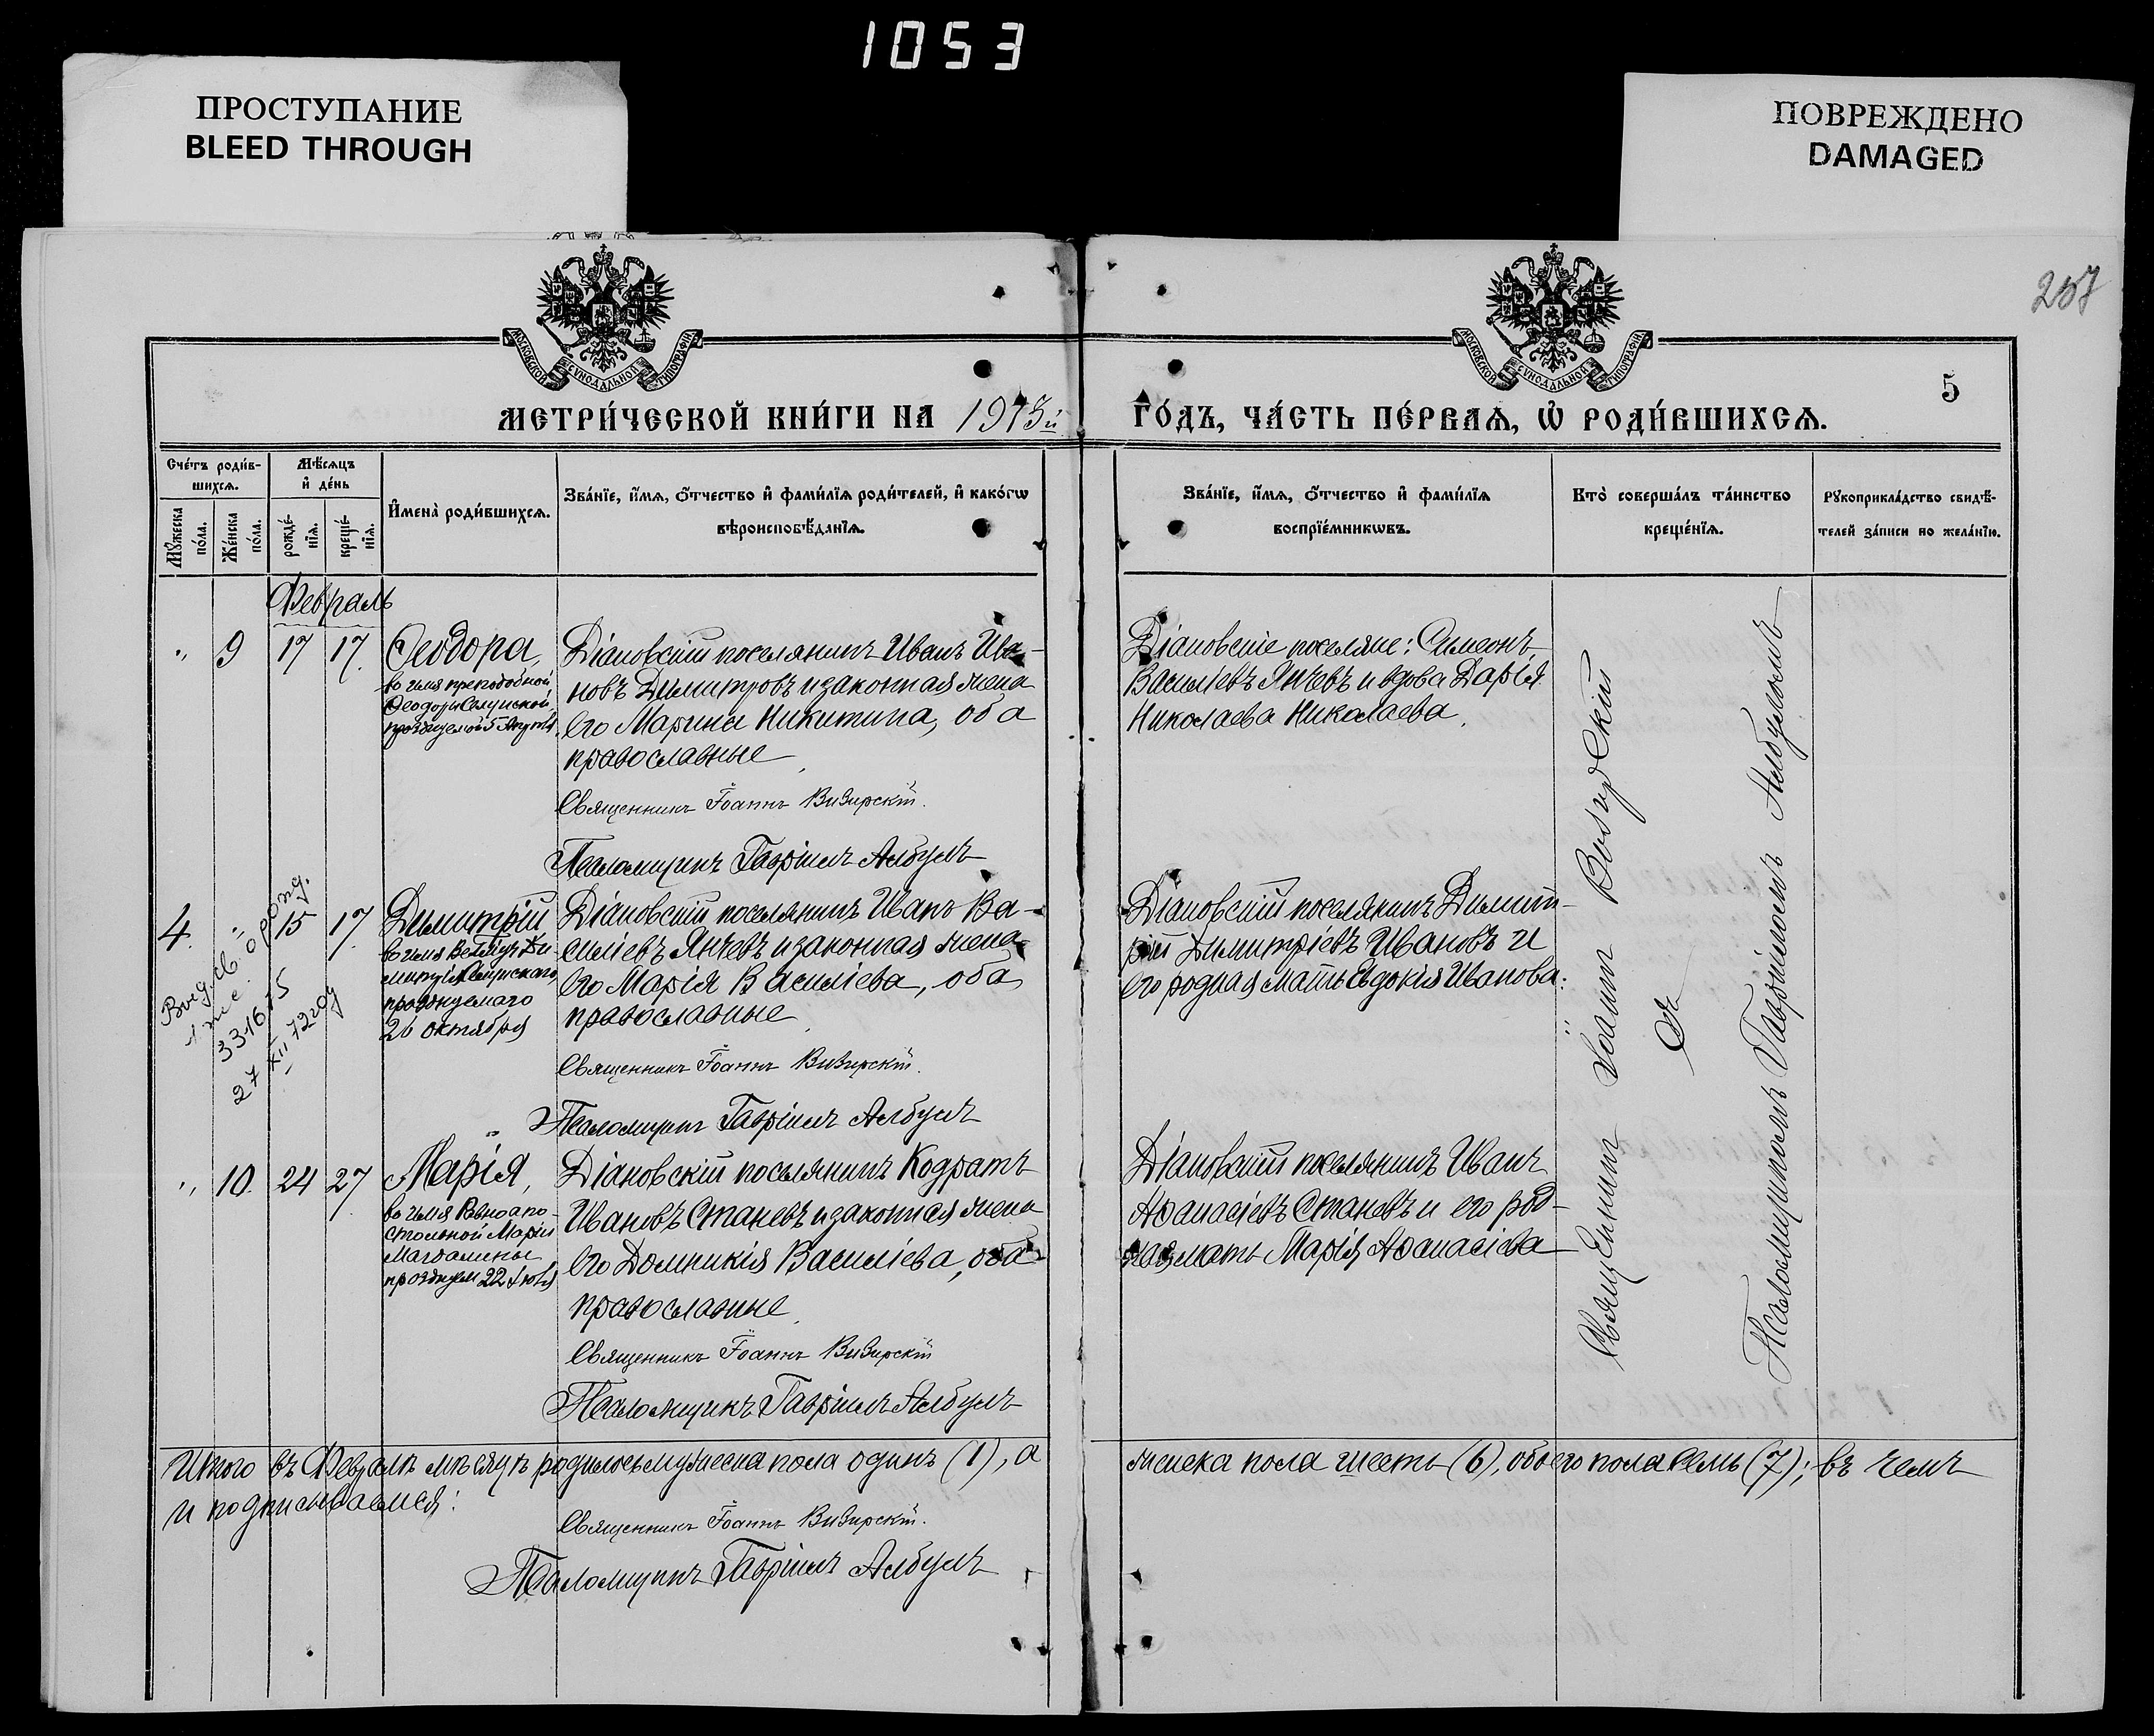 1053
ПРОСТУПАНИЕ
BLEED THROUGH
ПОВРЕЖДЕНО
DAMAGED
257
МОСКОВСКОЙ СѴНОДАЛЬНОЙ ТИПОГРАФІИ
МОСКОВСКОЙ СѴНОДАЛЬНОЙ ТИПОГРАФІИ
5
МЕТРИ́ЧЕСКОЙ КНИ́ГИ НА 1913й ГО́ДЪ, ЧА́СТЬ ПЕ́РВАѦ, Ѡ҆ РОДИ́ВШИХСѦ.
Сче́тъ роди́в-
шихсѧ.
Мѣ́сѧцъ
и҆ де́нь
Мꙋ́жеска
по́ла.
Же́нска
по́ла.
рожде́-
нїѧ.
креще́-
нїѧ.
И҆мена̀ роди́вшихсѧ.
Зва́нїе, и҆́мѧ, ѻ҆́тчество и҆ фами́лїѧ роди́телей, и҆ како́гѡ
вѣроисповѣ́данїѧ.
Зва́нїе, и҆́мѧ, ѻ҆́тчество и҆ фами́лїѧ
воспрїе́мникѡвъ.
Кто̀ соверша́лъ та́инство
креще́нїѧ.
Рꙋкоприкла́дство свидѣ́-
телей за́писи по жела́нїю.
Февраль
" 9 17 17 Ѳеодора,
во имя преподобной
Ѳеодоры Солунской,
празднуемой 5 Апрѣля.
Діановскій поселянинъ Иванъ Ива-
новъ Димитровъ и законная жена
его Марина Никитина, оба
православные
Священникъ Іоаннъ Визирскій.
Псаломщикъ Гавріилъ Албулъ
Діановскіе поселяне: Симеонъ
Василіевъ Янчевъ и вдова Дарія
Николаева Николаева.
4. " 15 17 Димитрій
во имя Велмуч Ди-
митрія Солунскаго,
празднуемаго
26 октября
33-16
27 XII 72
Діановскій поселянинъ Иванъ Ва-
силіевъ Янчевъ и законная жена
его Марія Василіева, оба
православные
Священникъ Іоаннъ Визирскій.
Псаломщикъ Гавріилъ Албулъ
Діановскій поселянинъ Димит-
рій Димитріевъ Ивановъ и
его родная мать Евдокія Иванова.
" 10. 24 27 Марія,
во имя Равноапо-
стольной Маріи
Магдалины
празднуем 22 Іюля
Діановскій поселянинъ Кодратъ
Ивановъ Станевъ и законная жена
его Домникія Василіева, оба
православные
Священникъ Іоаннъ Визирскій
Псаломщикъ Гавріилъ Албулъ
Діановскій поселянинъ Иванъ
Аѳанасіевъ Станевъ и его род-
ная мать Марія Аѳанасіева
Священникъ Іоаннъ Визирскій
съ
Псаломщикомъ Гавріиломъ Албуломъ
Итого въ Февралѣ мѣсяцѣ родилось мужеска пола одинъ (1), а женска пола шесть (6), обоего пола семь (7); въ чемъ
и подписываемся:
Священникъ Іоаннъ Визирскій.
Псаломщикъ Гавріилъ Албулъ